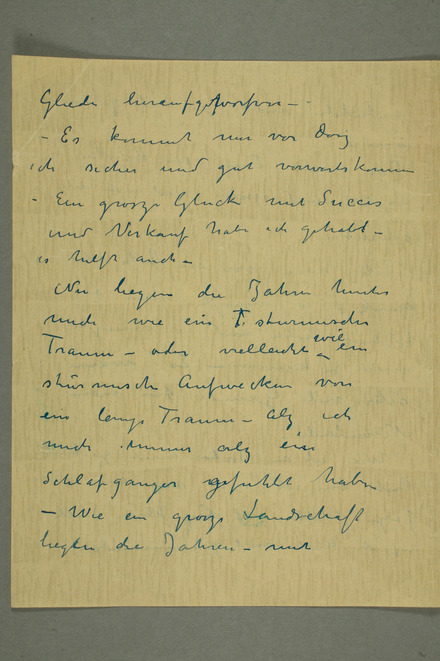 Glieder heraufgeworfen –
– Es kommt mir vor dasz
ich sicher und gut vorwartskomme
– Ein grosze Gluck mit Succes
und Verkauf habe ich gehabt –
es helft auch –
Nu liegen die Jahren hinter
mich wie ein sturmische
Traum – oder vielleicht wie ein
stürmische Aufwecken von
ein langs Traum – Alz ich
mich immer alz ein
Schlafganger gefuhlt habe
– Wie ein grosze Landschaft
liegen die Jahren – mit